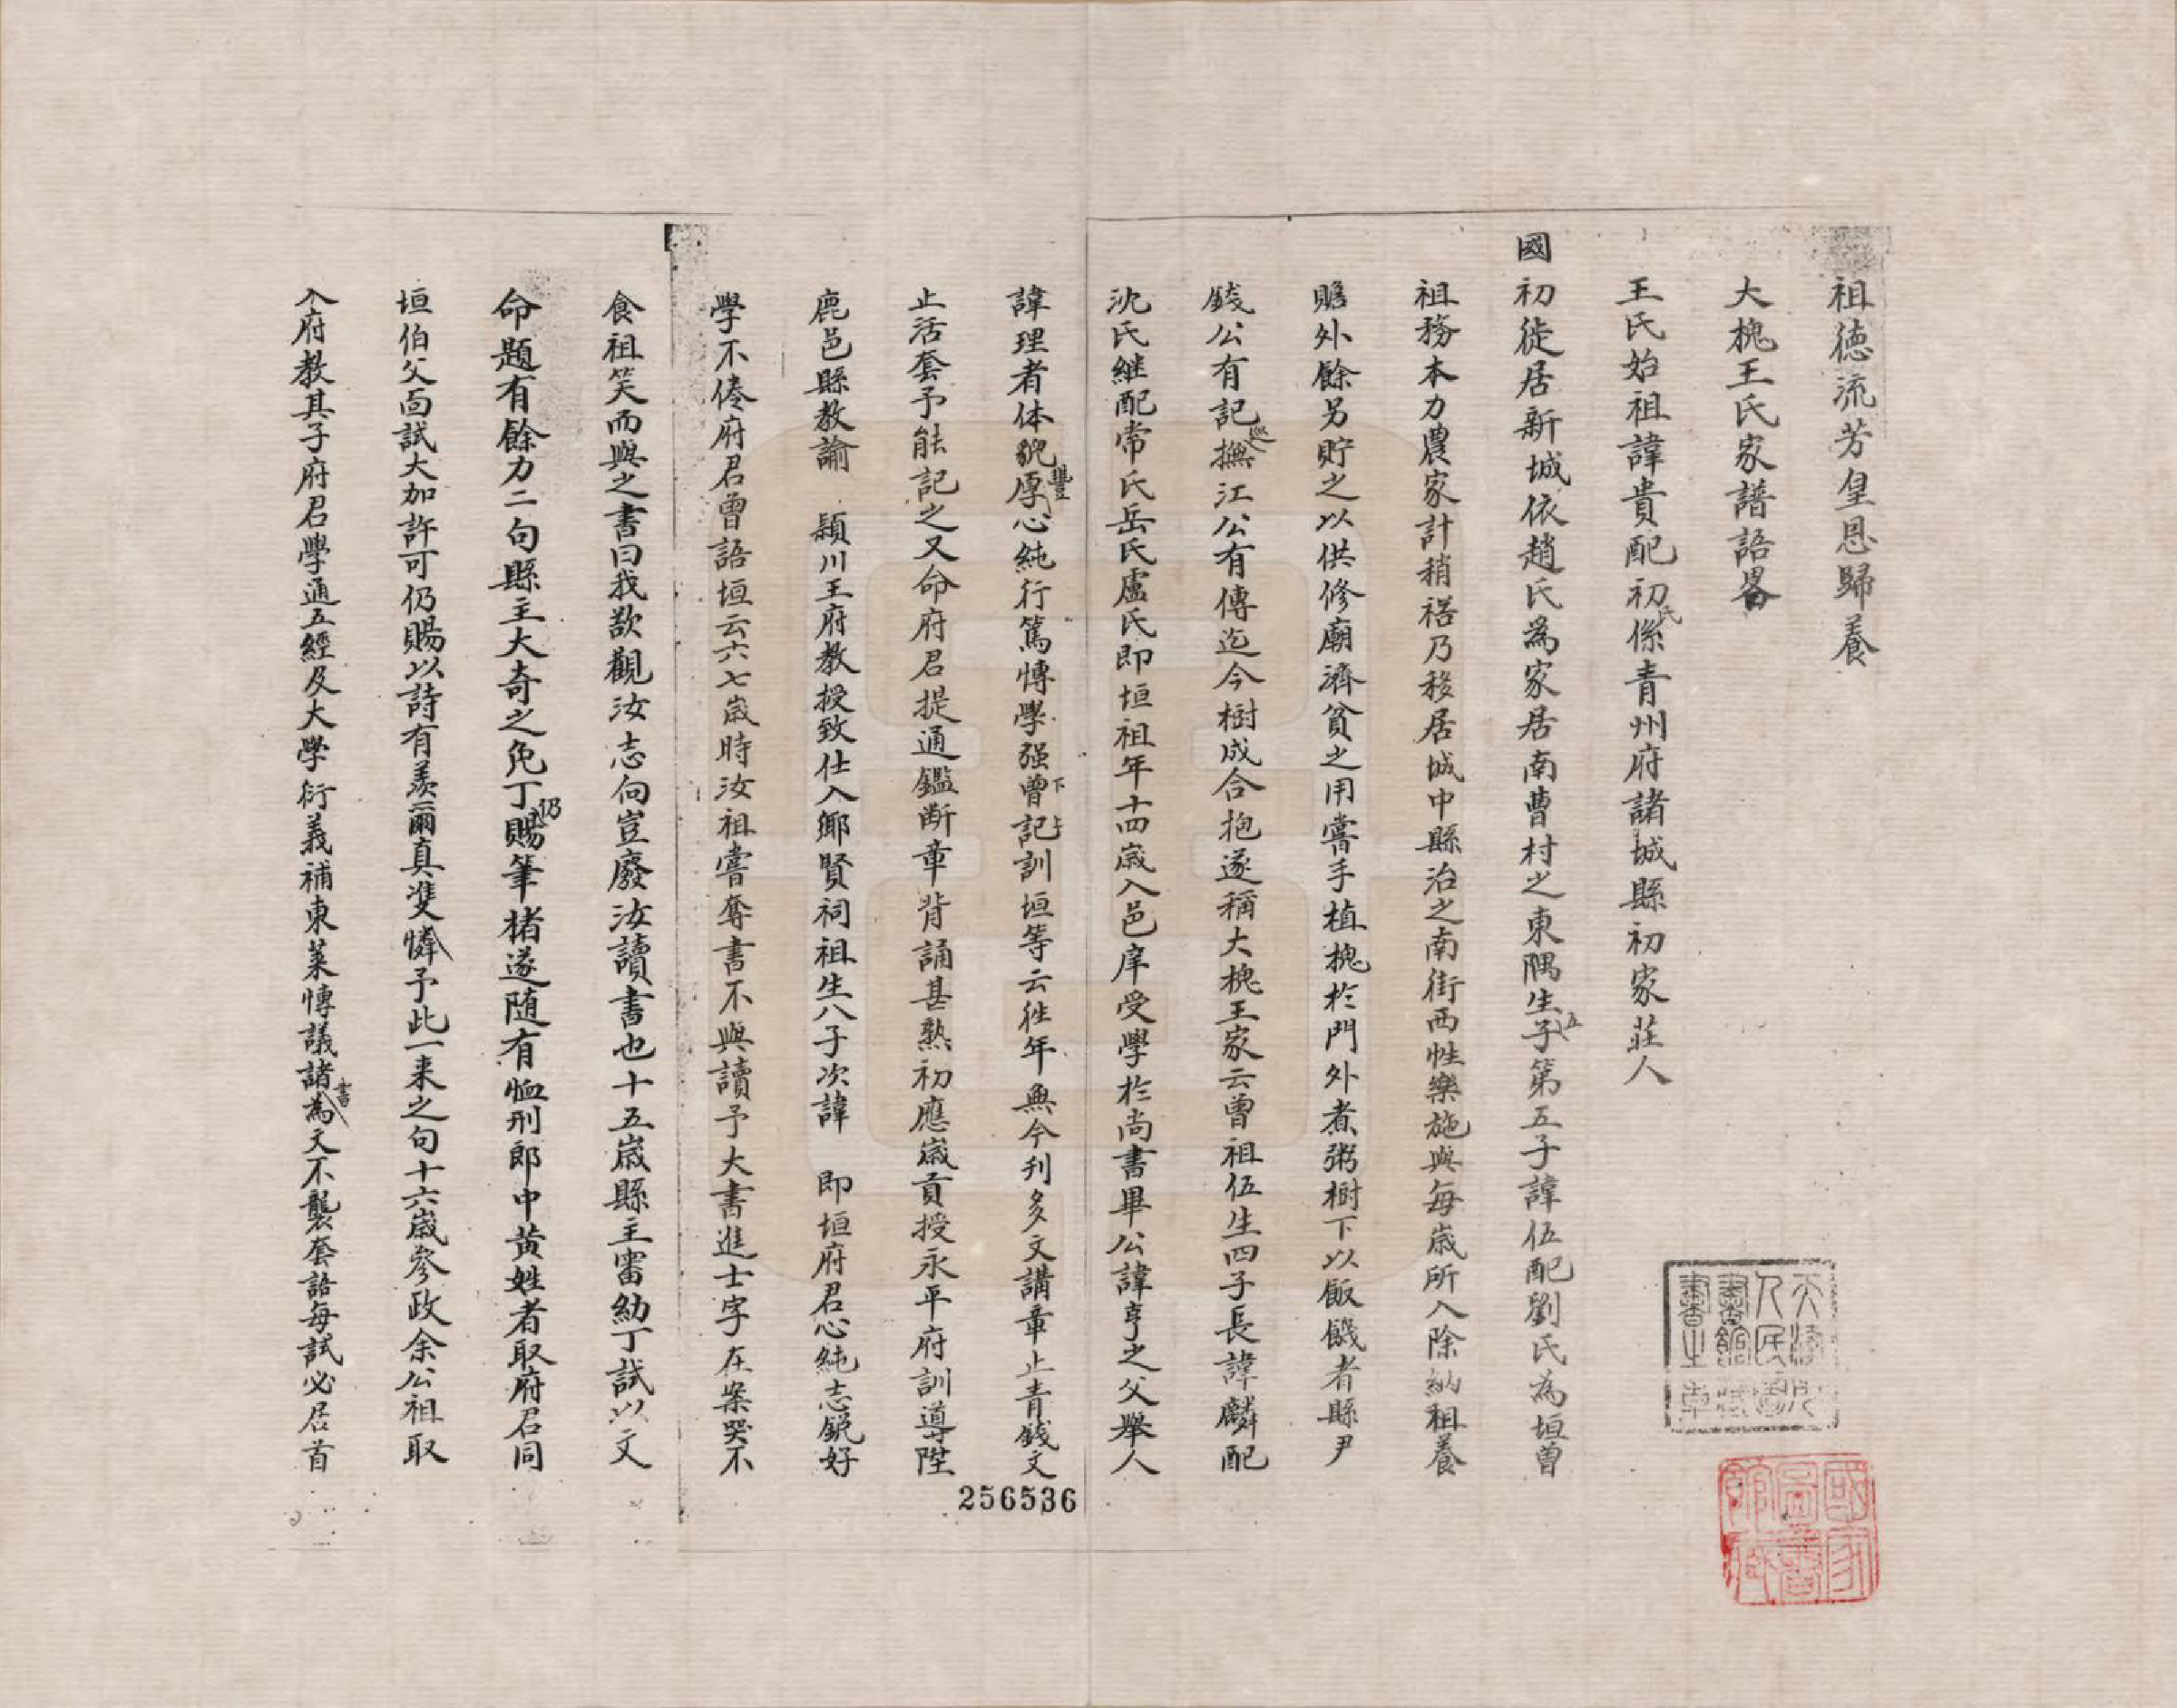 祖德流芳皇恩歸養
大槐王氏家譜語畧
王氏始祖諱貴配初氏係青州府諸城縣初家莊人
國初徙居新城依趙氏為家居南曹村之東隅生五子第五子諱伍配劉氏為垣曾
祖務本力農家計稍裕乃移居城中縣治之南街西性樂施與每歲所入除納租養
贍外餘另貯之以供修廟濟貧之用嘗手植槐於門外煮粥樹下以飯饑者縣尹
錢公有記巡撫江公有傳迄今樹成合抱遂稱大槐王家云曾祖伍生四子長諱麟配
沈氏継配常氏岳氏盧氏即垣祖年十四歲入邑庠受學於尚書畢公諱亨之父舉人
諱理者体貌豐厚心純行篤慱學强記曾訓垣等云徃年無今刋多文講章止青錢文
止活套予能記之又命府君提通鑑断章背誦甚熟初應歲貢授永平府訓導陞
鹿邑縣教諭 頴川王府教授致仕入鄉賢祠祖生八子次諱 即垣府君心純志銳好
學不倦府君曾語垣云六七歲時汝祖嘗奪書不與讀予大書進士字在案哭不
食祖笑而與之書曰我欲觀汝志向豈廢汝讀書也十五歲縣主審幼丁試以文
命題有餘力二句縣主大奇之免丁仍賜筆楮遂随有恤刑郎中黃姓者取府君同
垣伯父面試大加許可仍賜以詩有羨爾真雙憐予此一来之句十六歲參政余公祖取
入府教其子府君學通五經及大學衍義補東萊慱議諸書為文不襲套語每試必居首
256536
國家圖書館藏